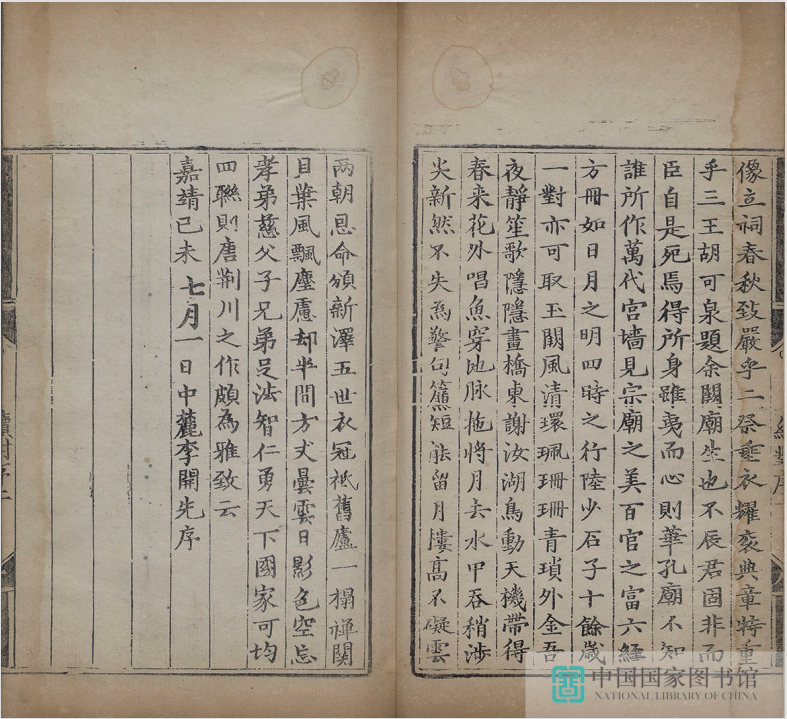 像立祠春秋致嚴乎二祭垂衣耀袞典章特重
乎三王胡可泉題余闕廟生也不辰君固非而
臣自是死焉得所身雖夷而心則華孔廟不知
誰所作萬代宮墻見宗廟之美百官之富六經
方冊如日月之明四時之行陸少石子十餘歲
一對亦可取玉闕風清環珮珊珊青瑣外金吾
夜靜笙歌隱隱畫橋東謝汝湖鳥動天機帶得
春來花外唱魚穿地脉拖將月去水中吞稍涉
尖新然不失為警句簷短能留月樓高不礙雲
兩朝恩命頒新澤五世衣冠祗舊廬一榻禅關
貝葉風飄塵慮却半間方丈曇雲日影色空忘
孝弟慈父子兄弟足法智仁勇天下國家可均
四聯則唐荊川之作頗為雅致云
嘉靖己未七月一日中麓李開先序
中国国家图书馆
NATIONAL LIBRARY OF CHINA